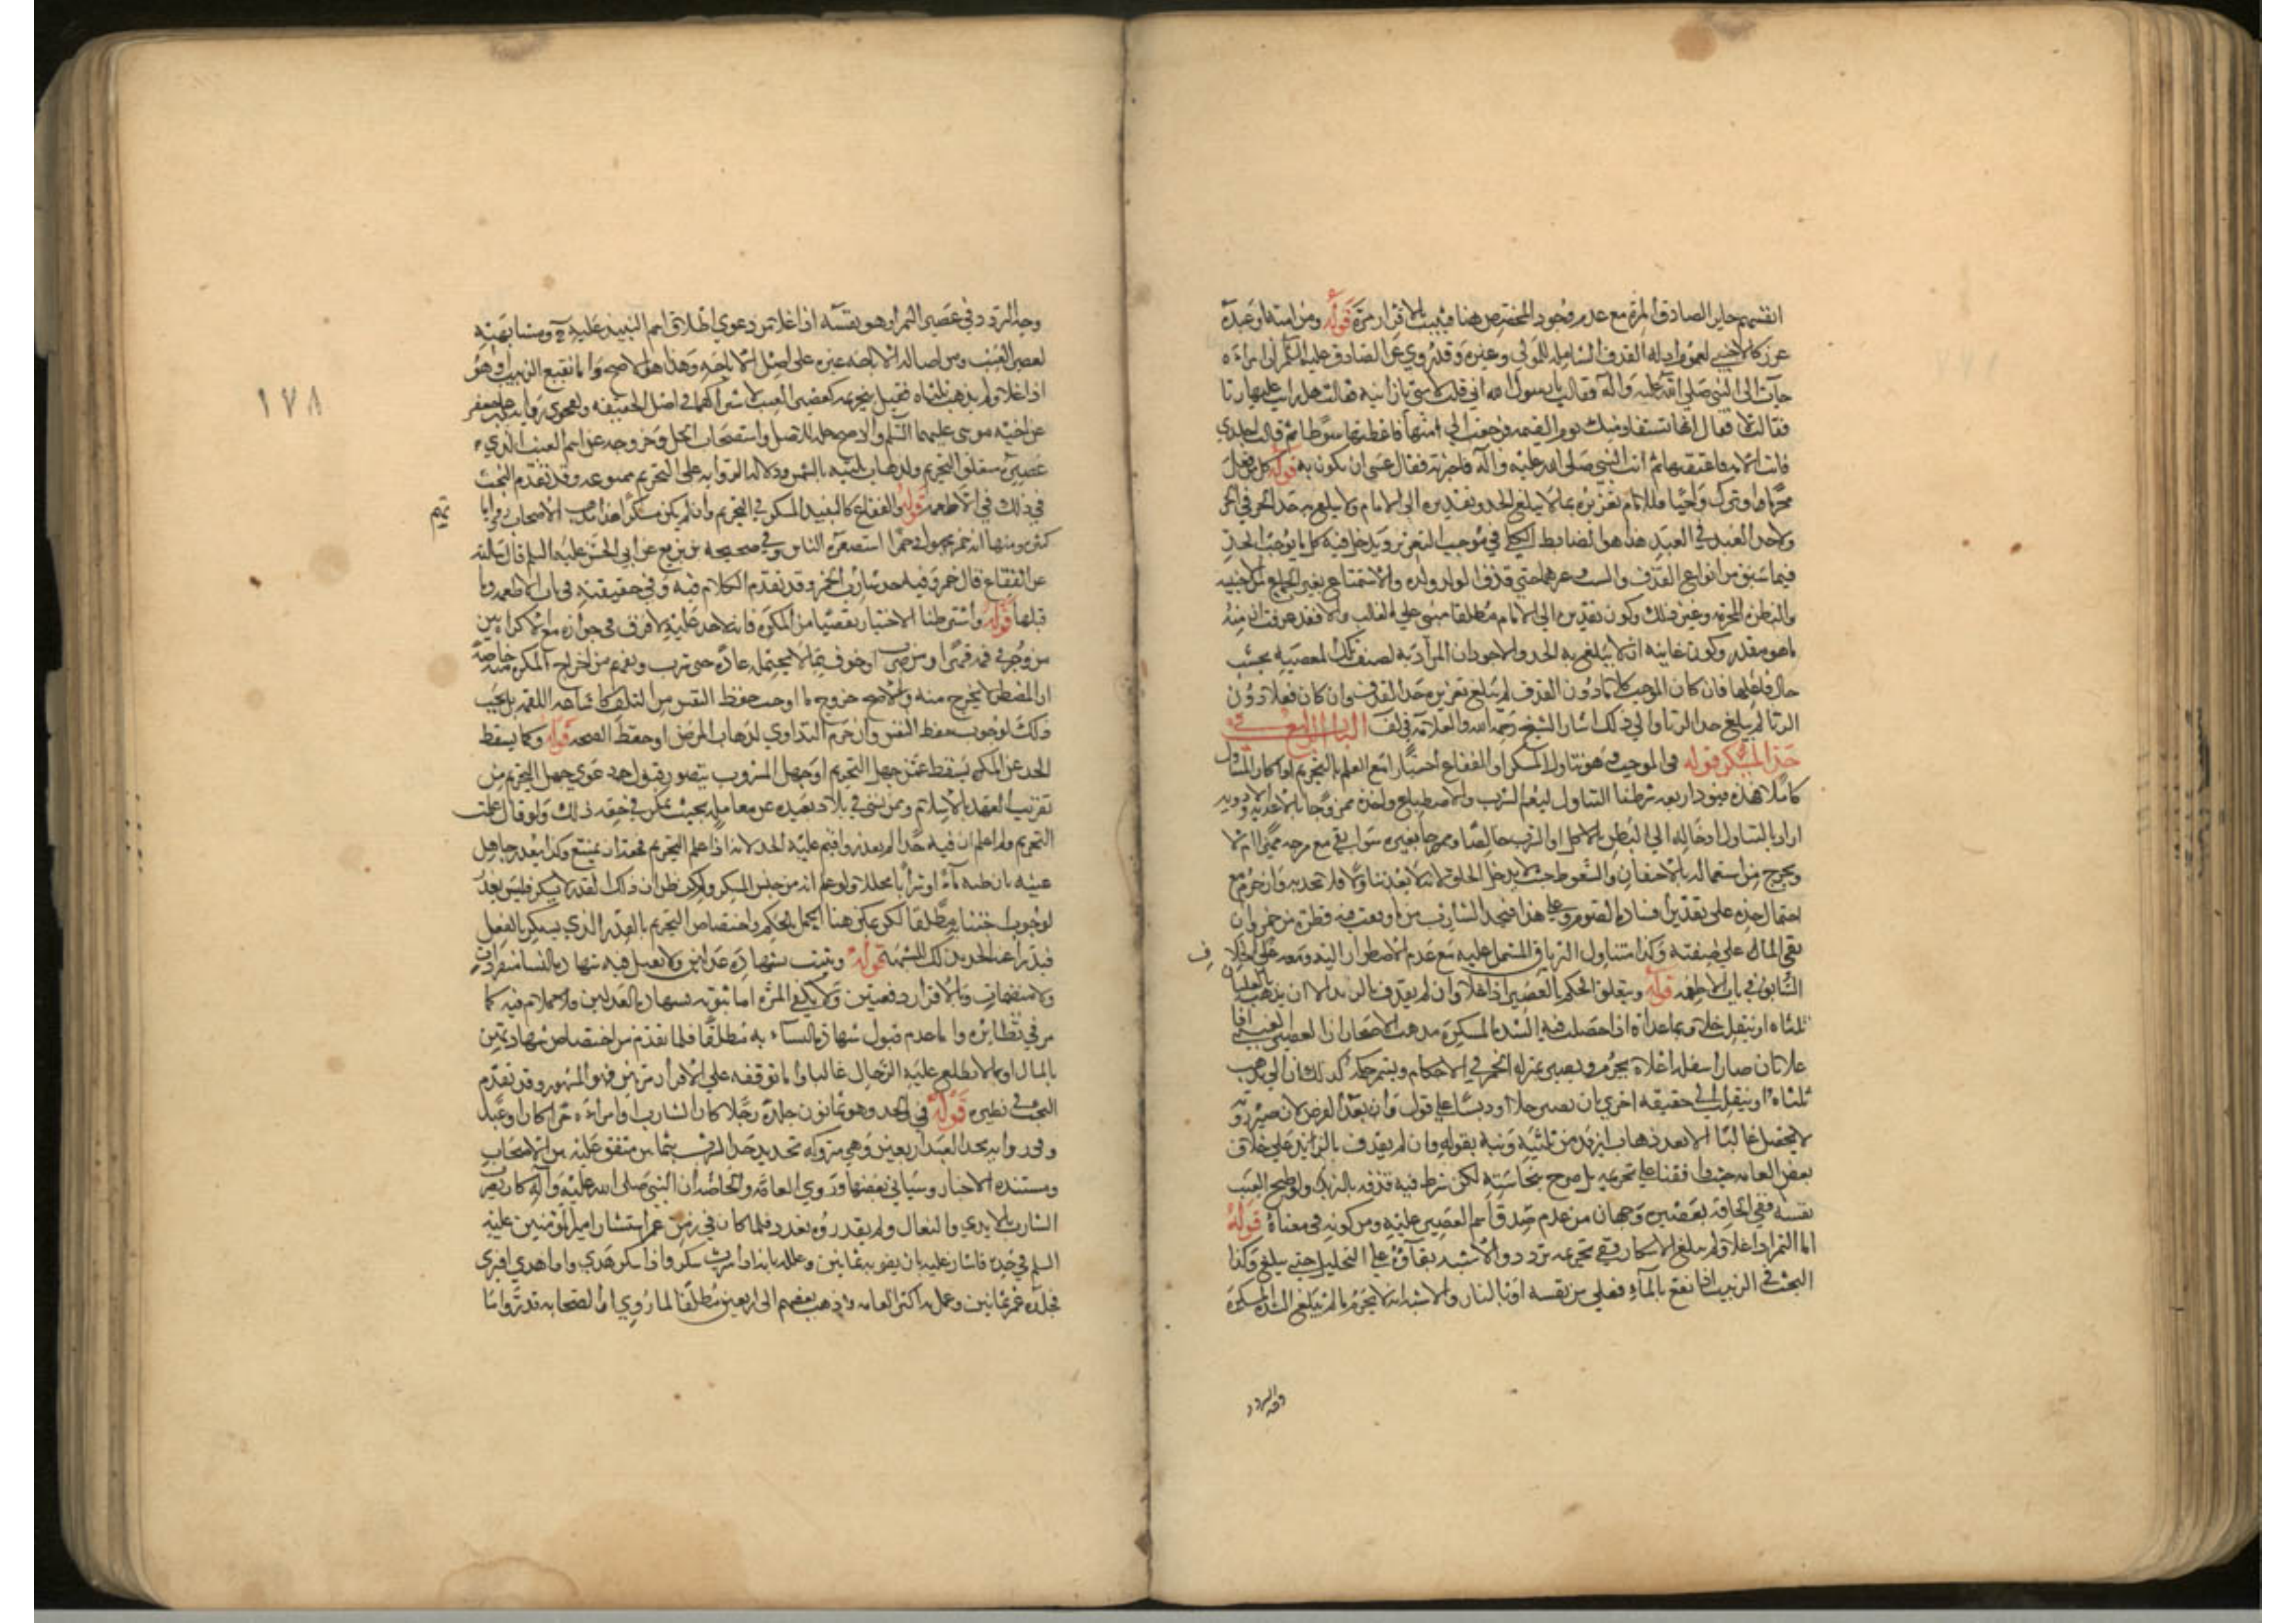 انقسم جابر الصادق المرة مع عدم وجود المخصص هنا فيثبت بالاقرار مرة قوله ومن امته او عبده
عزر كالاجنبي لعموم ادلة القذف الشاملة للمولى وغيره وقد روي عن الصادق عليه السلم ان امراة
جاءت الى النبي صلى الله عليه وآله فقالت يا رسول الله اني قلت لامتي يا زانية فقال هل رايت عليها زنا
فقالت لا فقال انها تستقاد منك يوم القيمه فرجعت الى امتها فاعطتها سوطا ثم قالت اجلديني
فابت الامة فاعتقتها ثم اتت النبي صلى الله عليه وآله فاخبرته فقال عسى ان يكون به قوله كل من فعل
محرما او ترك واجبا فللامام تعزيره بما لا يبلغ الحد وتقديره الى الامام ولا يبلغ به حد الحر في الحر
ولا حد العبد في العبد هذا هو الضابط الكلي في موجب التعزير ويدخل فيه كل ما يوجب الحد
فيما سبق من انواع القذف والسب عرهما حتى قذف الوالد ولده والاستمتاع بغير الجماع للاجنبيه
والنظر المحرم وغير ذلك وكون تقديره الى الامام مطلقا مبني على الغالب والا فقد عرفت ان منه
ما هو مقدر وكون غايته ان لا يبلغ به الحد والاجود ان المراد به لصنف تلك المعصيه بحسب
حال فاعلها فان كان الموجب كلاما دون القذف لم يبلغ تعزيره حد القذف وان كان فعلا دون
الزنا لم يبلغ حد الزنا والى ذلك اشار الشيخ رحمه الله والعلامة في لف الباب الرابع في
حد المسكر قوله في الموجب وهو تناول المسكر او الفقاع اختيارا مع العلم بالتحريم اذا كان المتناول
كاملا فهذه قيود اربعه شرطنا التناول ليعم الشرب والاصطباغ واخذه ممزوجا بالاغذيه والادويه
اراد بالتناول ادخاله الى البطن بالاكل او الشرب خالصا وممزوجا بغيره سواء بقي مع مزجه مميزا ام لا
ويخرج من استعماله بالاحتقان والسعوط حيث لا يدخل الحلق لانه لا يعد تناولا فلا تحد به وان حرم مع
احتمال حده على تقدير افساده الصوم وعلى هذا فيحد الشارب من ماء وقعت فيه قطرة من خمر وان
بقي الماء على صفته وكذا متناول الترياق المشتمل عليه مع عدم الاضطرار اليه ومعه على الخلاف
السابق في باب الاطعمه قوله ويتعلق الحكم بالعصير اذا غلا وان لم يقذف بالزبد الا ان يذهب بالغليان
ثلثاه او ينقلب خلا وبما عداه اذا حصلت فيه الشدة المسكرة مذهب الاصحاب ان العصير العنبي اذا
غلا بان صار اسفله اعلاه يحرم ويصير بمنزلة الخمر في الاحكام ويستمر حكمه كذلك الى ان يذهب
ثلثاه او ينقلب الى حقيقه اخرى بان يصير خلا او دبسا على قول وان بعد الفرض لان صيرورته
لا يحصل غالبا الا بعد ذهاب ازيد من ثلثيه ونبه بقوله وان لم يقذف بالزبد على خلاف
بعض العامه حيث وافقنا على تحريمه بل صرح بنجاسته لكن شرط فيه قذفه بالزبد ولو طبخ العنب
نفسه ففي الحاقه بعصيره وجهان من عدم صدق اسم العصير عليه ومن كونه في معناه قوله
اما التمر اذا غلا ولم يبلغ الاسكار ففي تحريمه تردد والاشبه بقاؤه على التحليل حتى يبلغ وكذا
البحث في الزبيب اذا نقع بالماء فغلي من نفسه او بالنار والاشبه انه لا يحرم ما لم يبلغ الشدة المسكرة
وجه التردد
وجه التردد في عصير التمر او هو نفسه اذا غلا من دعوى اطلاق اسم النبيذ عليه ح ومشابهته
لعصير العنب ومن اصالة الاباحه
اذا غلا ولم يذهب ثلثاه فقيل بتحريمه كعصير العنب لاشتراكهما في اصل الحقيقه ولفحوى رواية علي بن جعفر
عن اخيه موسى عليهما السلم والاصح حله للاصل واستصحاب الحل وخروجه عن اسم العنب الذي
عصيره متعلق التحريم ولذهاب ثلثيه بالشمس ودلالة الرواية على التحريم ممنوعه وقد تقدم البحث
في ذلك في الاطعمه قوله والفقاع كالنبيذ المسكر في التحريم وان لم يكن مسكرا هذا مذهب الاصحاب وروايا
تهم
كثيره ومنها انه خمر مجهول وخمر استصغره الناس وفي صحيحة بن بزيع عن ابي الحسن عليه السلم قال سالته
عن الفقاع قال خمر وفيه حد شارب الخمر وقد تقدم الكلام فيه وفي حقيقته في باب الاطعمه وما
قبلها قوله واشترطنا الاختيار تفصيا من المكره فانه لا حد عليه لا فرق في جوازه مع الاكراه بين
من وجر في فمه قهرا او من ضرب او خوف بما لا يحتمله عادة حتى شرب
ان المضطر لا يخرج منه والاصح خروجه ما اوجب حفظ النفس من التلف كاساغه اللقمه بل يجب
ذلك لوجوب حفظ النفس وان حرم التداوي لذهاب المرض او حفظ الصحه قوله وكما يسقط
الحد عن المكره يسقط عمن جهل التحريم او جهل المشروب يتصور قبول دعوى جهل التحريم من
قريب العهد بالاسلام وممن نشئ في بلاد بعيده عن معالمه بحيث يمكن في حقه ذلك ولو قال علمت
التحريم ولم اعلم ان فيه حدا لم يعذر واقيم عليه الحد لانه اذا علم التحريم فحقه ان يمتنع وكذا يعذر جاهل
عينه بان ظنه ماء او شرابا محللا ولو علم انه من جنس المسكر ولكن ظن ان ذلك القدر لا يسكر فليس بعذر
لوجوب اجتنابه مطلقا لكن يمكن هنا الجهل بالحكم واختصاص التحريم بالقدر الذي يسكر بالفعل
فيدرا عنه الحد بذلك للشبهة قوله ويثبت بشهادة عدلين ولا يقبل فيه شهادة النسا منفردات
ولا منضمات وبالاقرار دفعتين ولا يكفي المرة اما ثبوته بشهادة العدلين فلا كلام فيه كما
مر في نظائره واما عدم قبول شهادة النساء به مطلقا فلما تقدم من اختصاص شهادتهن
بالمال او بما لا يطلع عليه الرجال غالبا واما توقفه على الاقرار مرتين فهو المشهور وقد تقدم
البحث في نظيره قوله في الحد وهو ثمانون جلدة رجلا كان الشارب او امراة حرا كان او عبدا
وفي رواية يحد العبد اربعين وهي متروكه تحديد حد الشرب بثمانين متفق عليه بين الاصحاب
ومستنده الاخبار وسياتي بعضها وروى العامة والخاصة ان النبي صلى الله عليه وآله كان يضرب
الشارب بالايدي والنعال ولم يقدروه بعدد فلما كان في زمن عمر استشار امير المؤمنين عليه
السلم في حده فاشار عليه بان يضربه ثمانين وعلله بانه اذا شرب سكر واذا سكر هذى واذا هذى افترى
فجلده عمر ثمانين وعمل به اكثر العامه وذهب بعضهم الى اربعين مطلقا لما روي ان الصحابه قدروا ما
١٧٨